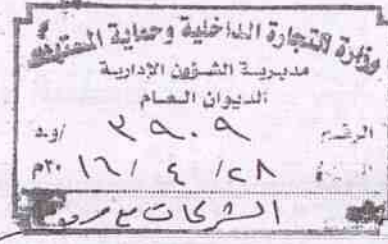 وزارة التجارة الداخلية وحماية المستهلك
مديرية الشؤون الإدارية
الديوان العام
الرقم ٣٩٠٩ /و.د
٢٨/ ٤ /١٦ ٢٠م
الشركات مع